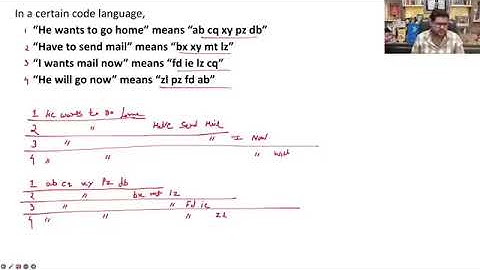 In a certain code language,
1 "He wants to go home" means "ab cq xy pz db"
2 "Have to send mail" means "bx xy mt lz"
3 "I wants mail now" means "fd ie lz cq"
4 "He will go now" means "zl pz fd ab"
1 He wants to Go home
2 " Have Send Mail
3 " " I Now
4 " " " Will
1 ab cq xy Pz db
2 " bx mt lz
3 " " Fd ie
4 " " " zl